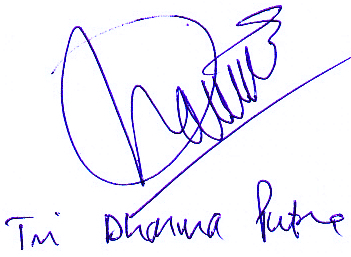 Tri Dharma Putra